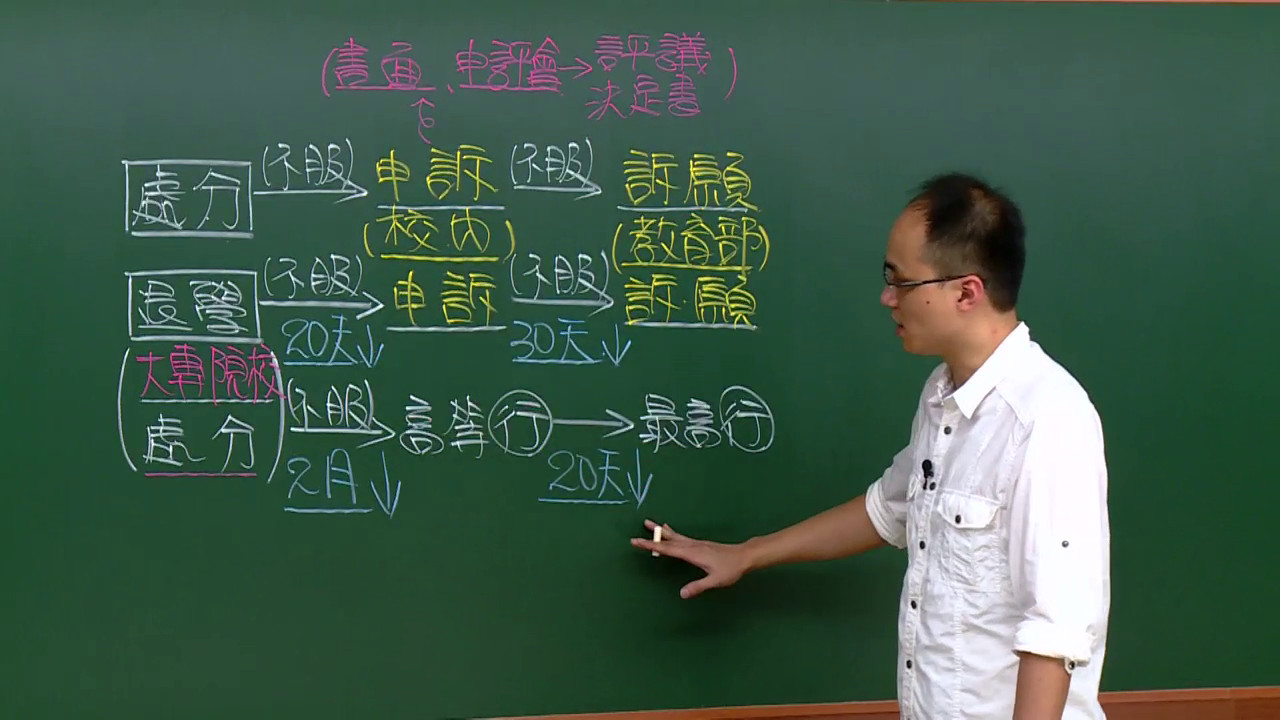 (書面、申評會→評議
決定書)
處分 (不服)→ 申訴 (不服)→ 訴願
(校內) (教育部)
退學 (不服)→ 申訴 (不服)→ 訴願
20天↓ 30天↓
(大專院校
處分) (不服)→ 高等行→最高行
2月↓ 20天↓